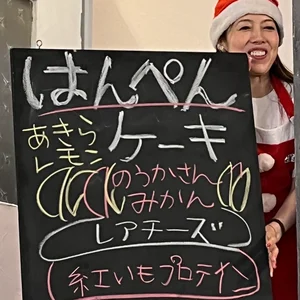 はんぺん
ケーキ
あきら
レモン
のうかさん
みかん
レアチーズ
紅いもプロテイン